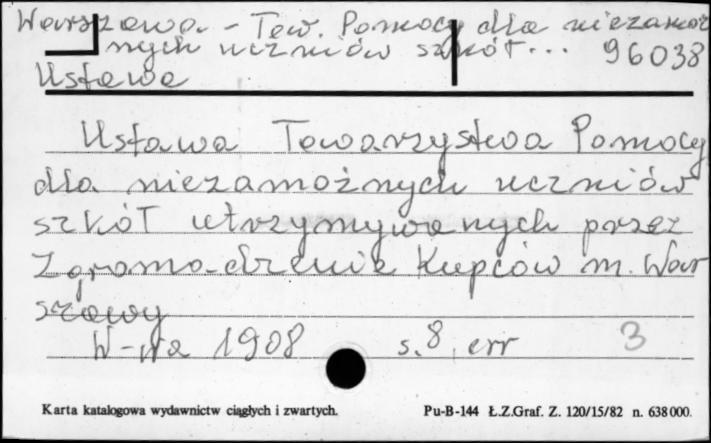 Warszawa. - Tow. Pomocy dla niezamoż
nych uczniów szkół... 96038
Ustawa
Ustawa Towarzystwa Pomocy
dla niezamożnych uczniów
szkół utrzymywanych przez
Zgromadzenie Kupców m. War
szawy
W-wa 1908 s. 8, err 3
Karta katalogowa wydawnictw ciągłych i zwartych. Pu-B-144 Ł.Z.Graf. Z. 120/15/82 n. 638000.